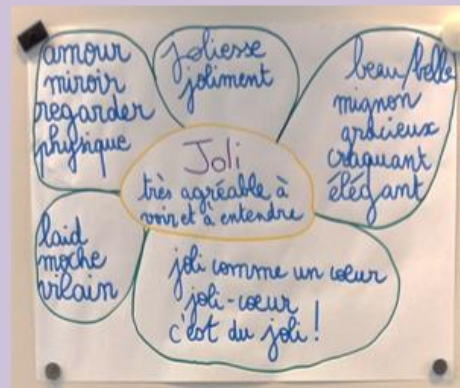 amour
miroir
regarder
physique
joliesse
joliment
beau/belle
mignon
gracieux
craquant
élégant
Joli
très agréable à
voir et à entendre
laid
moche
vilain
joli comme un cœur
joli-cœur
c'est du joli !